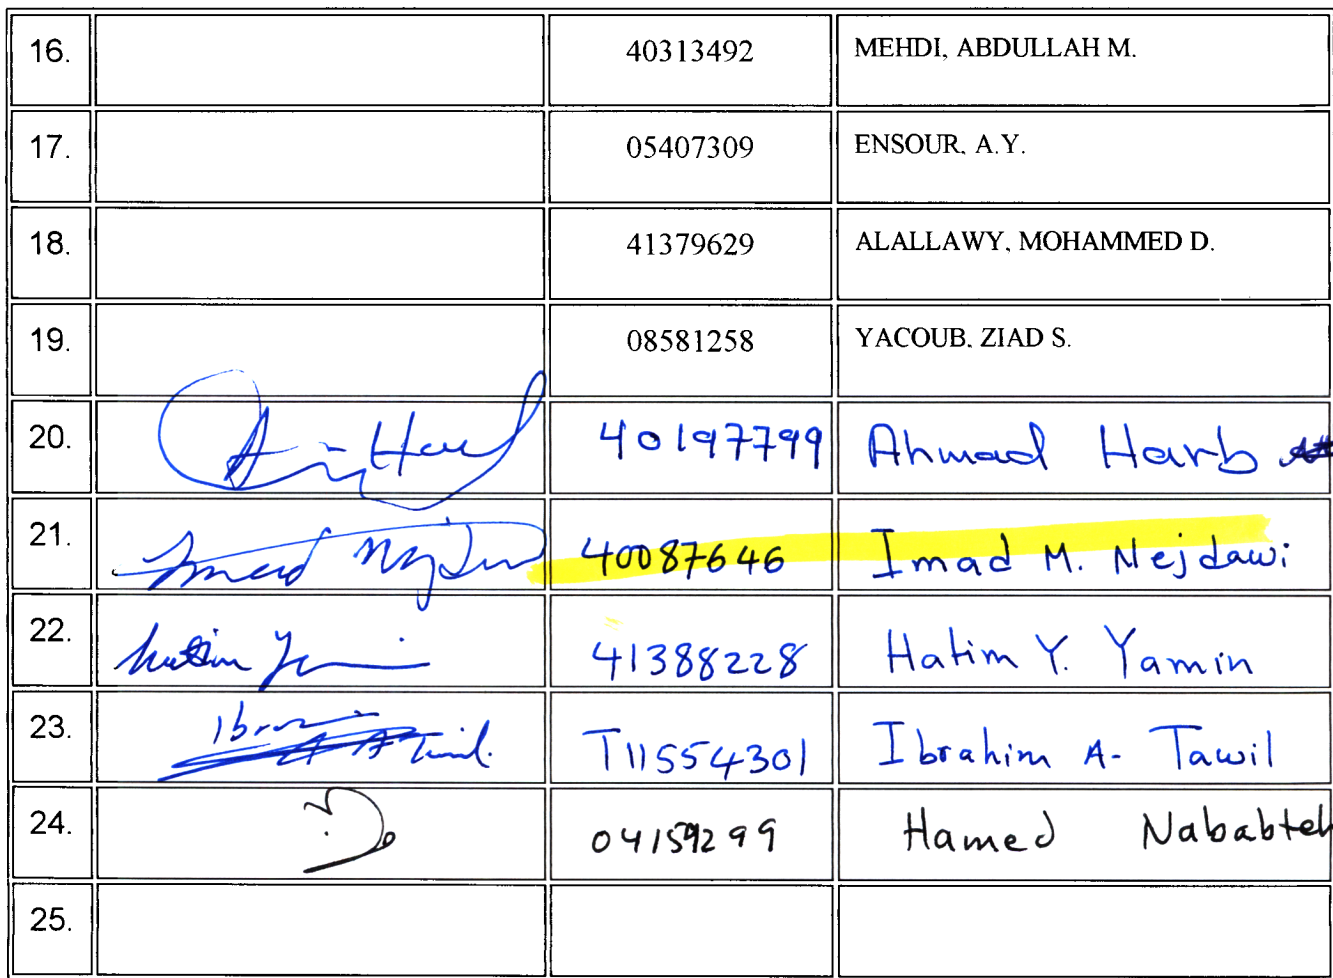 16. 40313492 MEHDI, ABDULLAH M.
17. 05407309 ENSOUR, A.Y.
18. 41379629 ALALLAWY, MOHAMMED D.
19. 08581258 YACOUB, ZIAD S.
20. 40197799 Ahmad Harb
21. Imad 40087646 Imad M. Nejdawi
22. Hatim 41388228 Hatim Y. Yamin
23. T11554301 Ibrahim A- Tawil
24. 04159299 Hamed Nababteh
25.